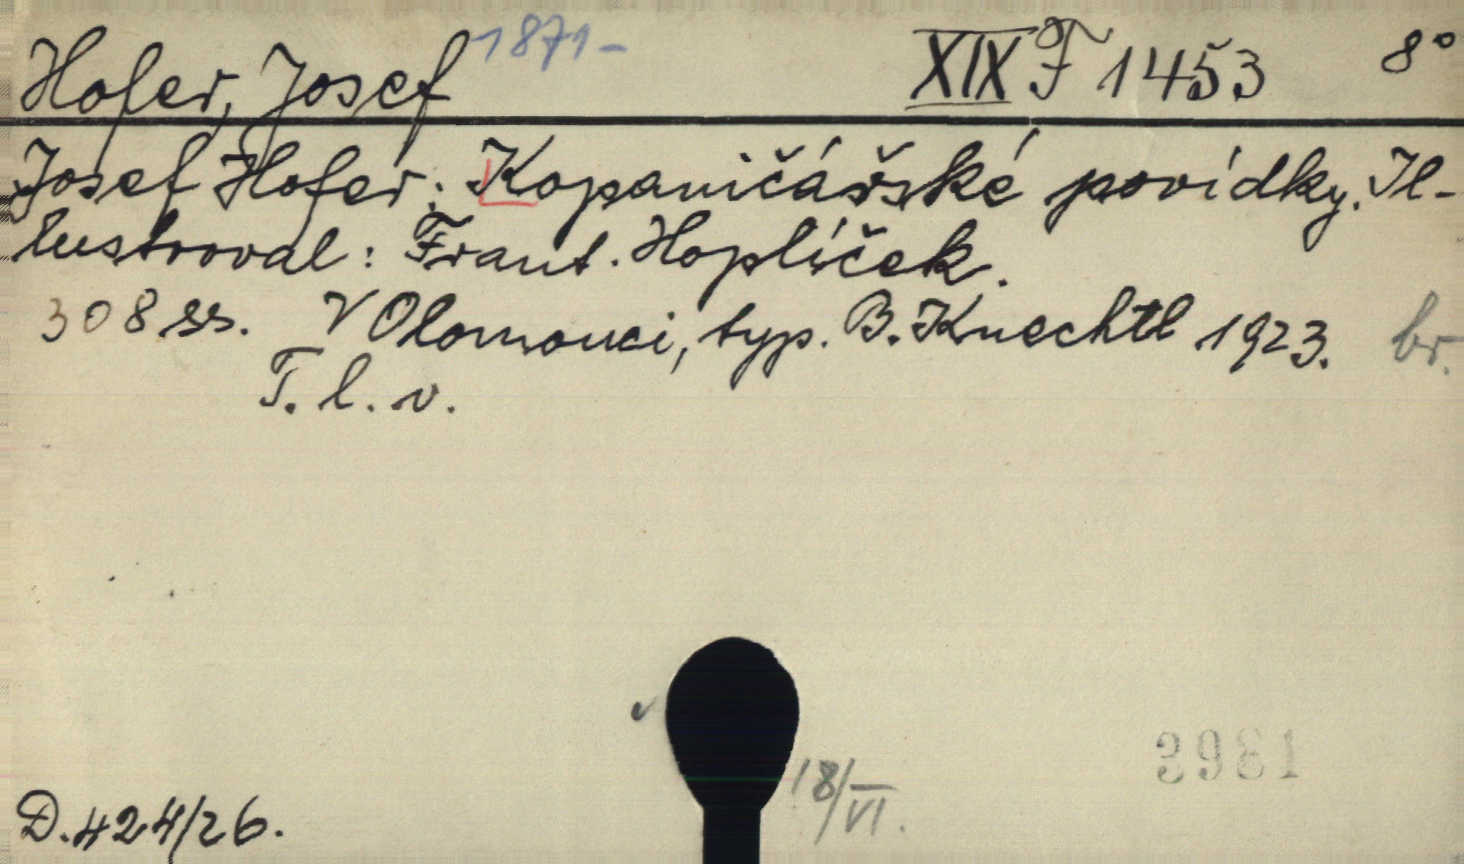 Hofer, Josef 1871- XIX F 1453 8°
Josef Hofer: Kopaničářské povídky. Il-
lustroval: Frant. Hoplíček.
308 ss. V Olomouci, typ. B. Knechtl 1923. br.
T. l. v.
3981
18/VI.
D. 424/26.